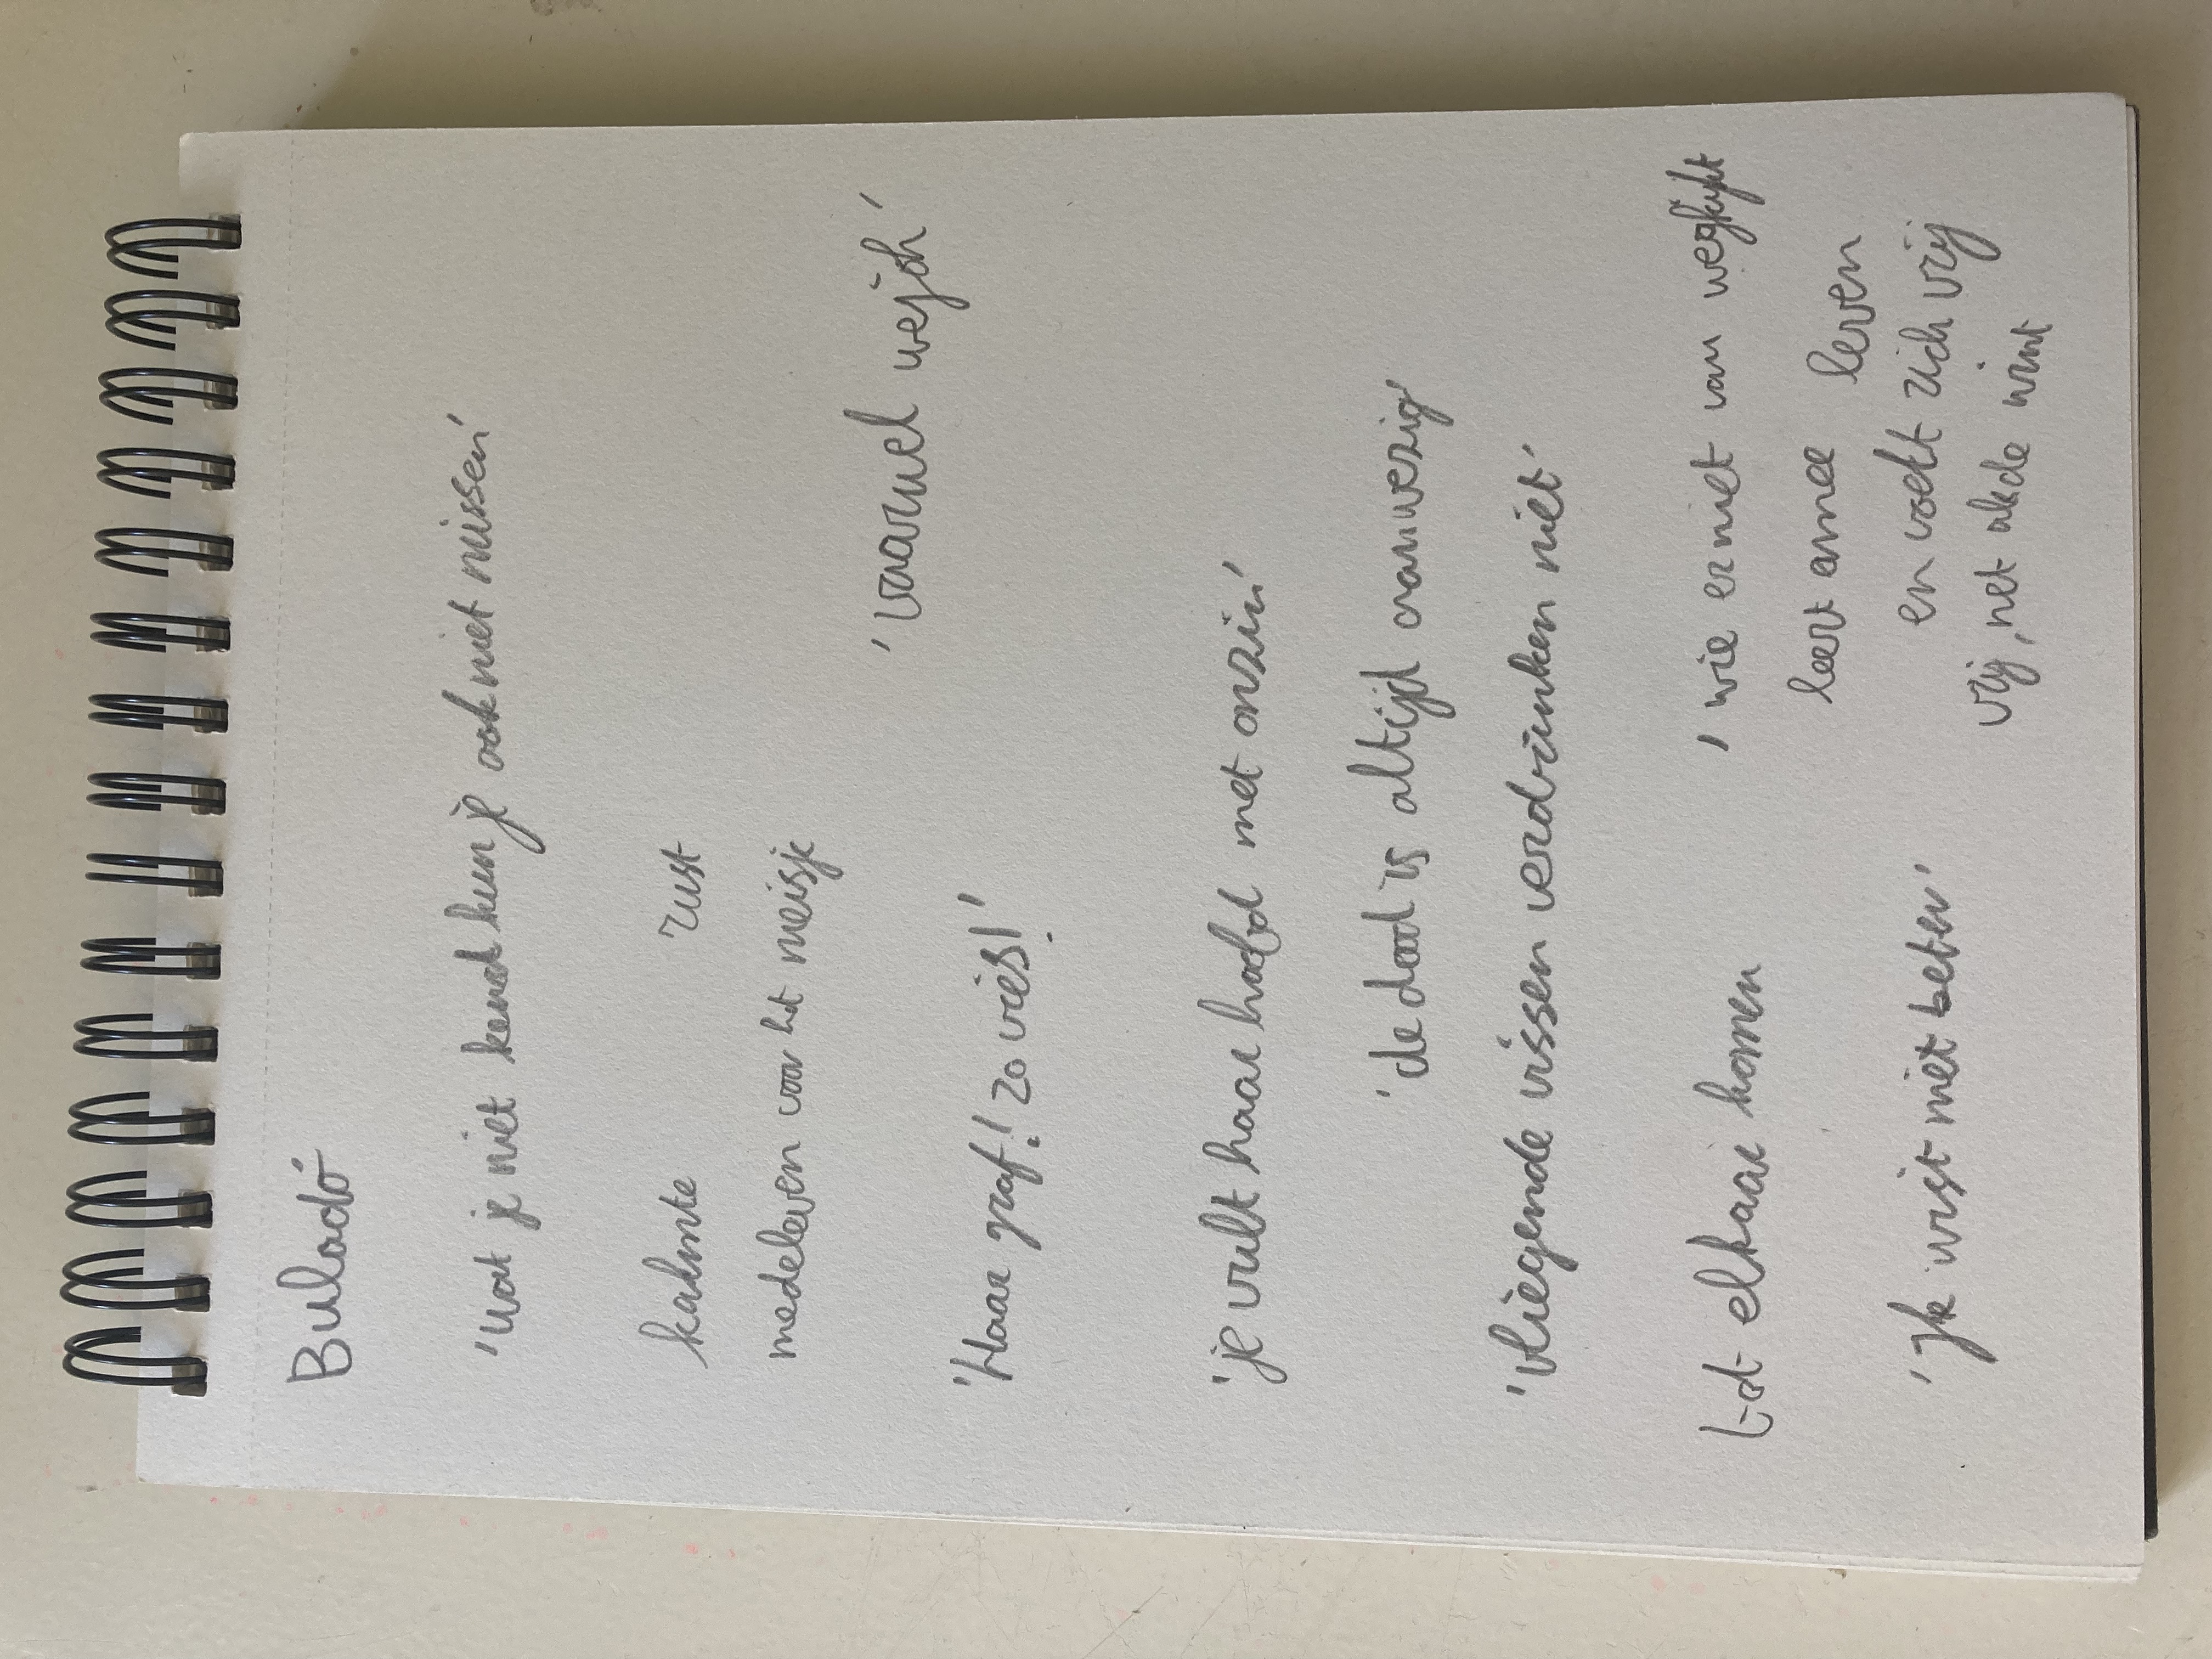 Buladó
'Wat je niet kend kun je ook niet missen'
kalmte rust
medeleven voor het meisje
'vaarwel wejoh'
'Haar graf! zo vies!'
'je vult haar hoofd met onzin'
'de dood is altijd aanwezig'
'vliegende vissen verdrinken niet'
tot elkaar komen
'wie er niet van wegkijkt
leert ermee leven
en voelt zich vrij
vrij, net als de wint
'Ik wist niet beter'